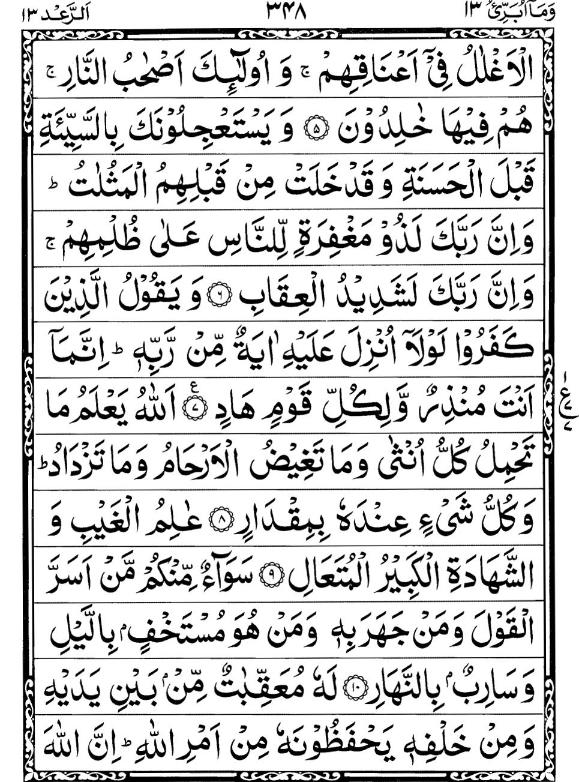 وَمَاۤ اُبَرِّئُ ١٣
٣٤٨
اَلرَّعْد ١٣
الْاَغْلٰلُ فِیْۤ اَعْنَاقِهِمْ ۚ وَ اُولٰٓئِكَ اَصْحٰبُ النَّارِ ۚ
هُمْ فِیْهَا خٰلِدُوْنَ ۝۵ وَ یَسْتَعْجِلُوْنَكَ بِالسَّیِّئَةِ
قَبْلَ الْحَسَنَةِ وَ قَدْ خَلَتْ مِنْ قَبْلِهِمُ الْمَثُلٰتُ ؕ
وَاِنَّ رَبَّكَ لَذُوْ مَغْفِرَةٍ لِّلنَّاسِ عَلٰی ظُلْمِهِمْ ۚ
وَاِنَّ رَبَّكَ لَشَدِیْدُ الْعِقَابِ ۝۶ وَ یَقُوْلُ الَّذِیْنَ
كَفَرُوْا لَوْلَاۤ اُنْزِلَ عَلَیْهِ اٰیَةٌ مِّنْ رَّبِّهٖ ؕ اِنَّمَاۤ
اَنْتَ مُنْذِرٌ وَّلِكُلِّ قَوْمٍ هَادٍ ۝۷ ع اَللّٰهُ یَعْلَمُ مَا
١ ع ٧ ٧
تَحْمِلُ كُلُّ اُنْثٰی وَمَا تَغِیْضُ الْاَرْحَامُ وَمَا تَزْدَادُ ؕ
وَكُلُّ شَیْءٍ عِنْدَهٗ بِمِقْدَارٍ ۝۸ عٰلِمُ الْغَیْبِ وَ
الشَّهَادَةِ الْكَبِیْرُ الْمُتَعَالِ ۝۹ سَوَآءٌ مِّنْكُمْ مَّنْ اَسَرَّ
الْقَوْلَ وَمَنْ جَهَرَ بِهٖ وَمَنْ هُوَ مُسْتَخْفٍۭ بِالَّیْلِ
وَ سَارِبٌۢ بِالنَّهَارِ ۝۱۰ لَهٗ مُعَقِّبٰتٌ مِّنْۢ بَیْنِ یَدَیْهِ
وَمِنْ خَلْفِهٖ یَحْفَظُوْنَهٗ مِنْ اَمْرِ اللّٰهِ ؕ اِنَّ اللّٰهَ